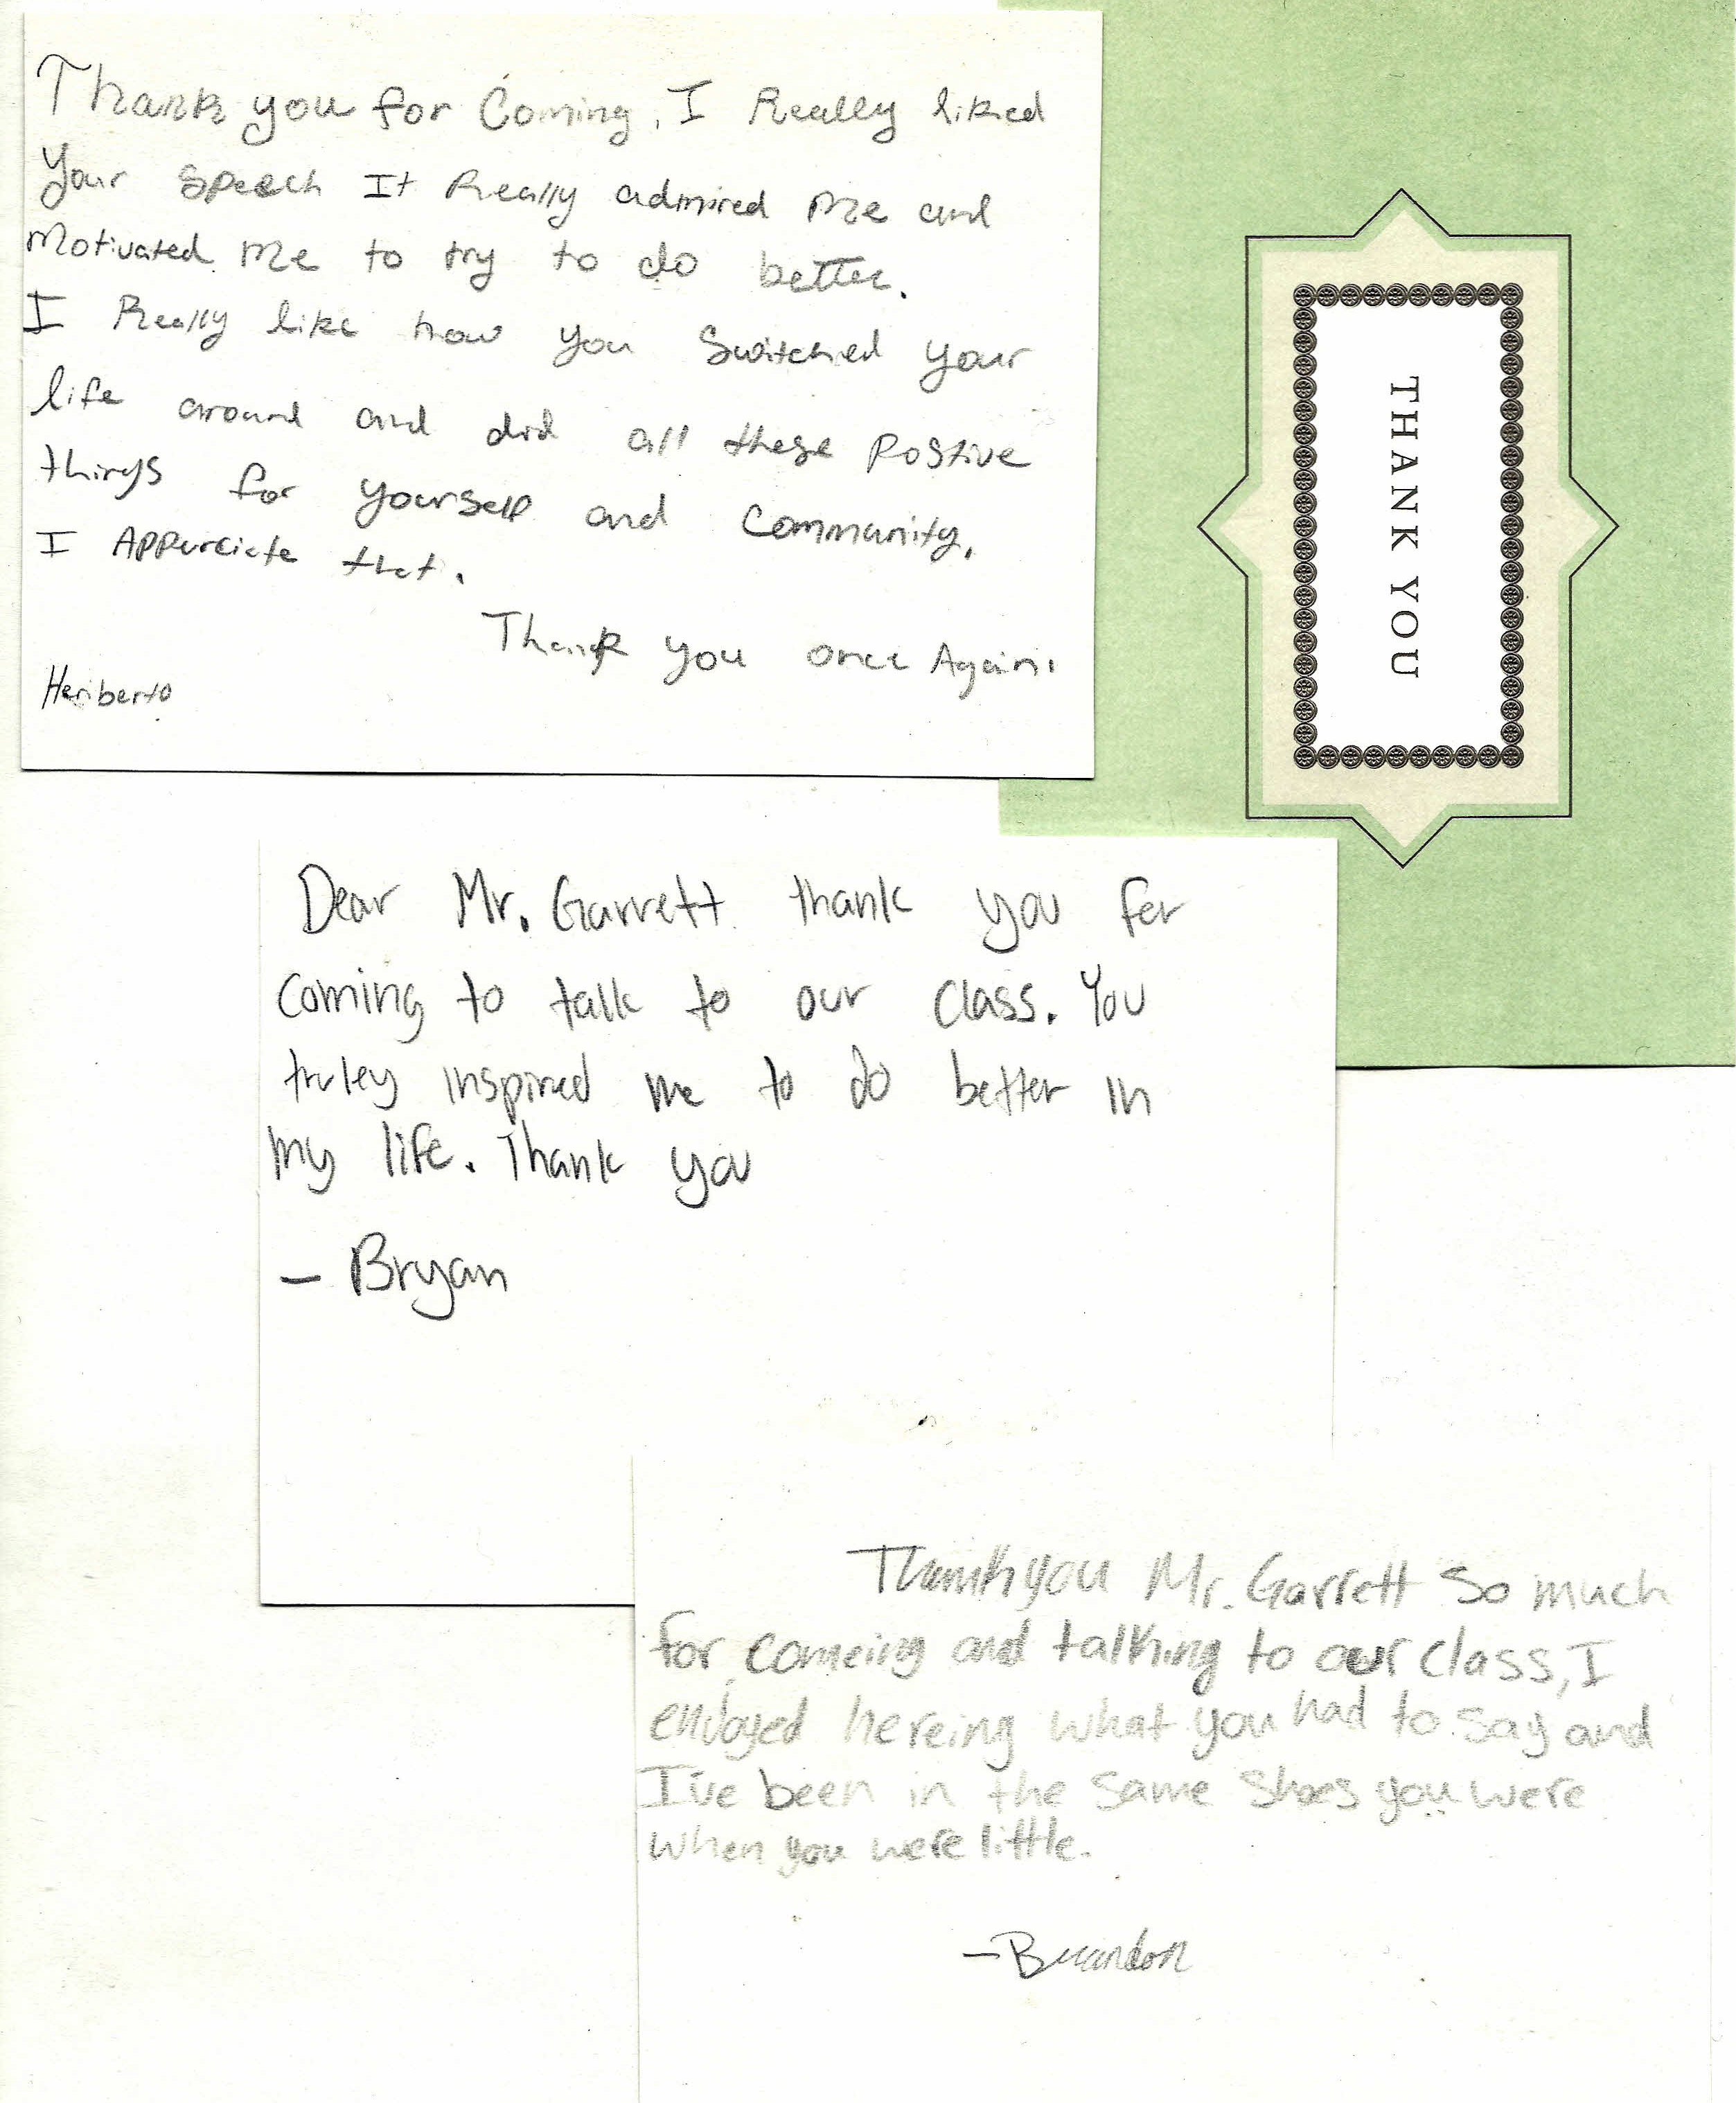 Thank you for Coming, I Really liked
Your Speech It Really admired Me and
Motivated Me to try to do better.
I Really like how you Switched your
life around and did all these Postive
things for yourself and Community.
I Appurciate that.
Thank you once Again.
Heriberto
THANK YOU
Dear Mr. Garrett thank you for
coming to talk to our class. You
truley inspired me to do better in
my life. Thank you
— Bryan
Thank you Mr. Garrett so much
for comeing and talking to our class, I
enjoyed hereing what you had to say and
I've been in the same shoes you were
when you were little.
- Brandon